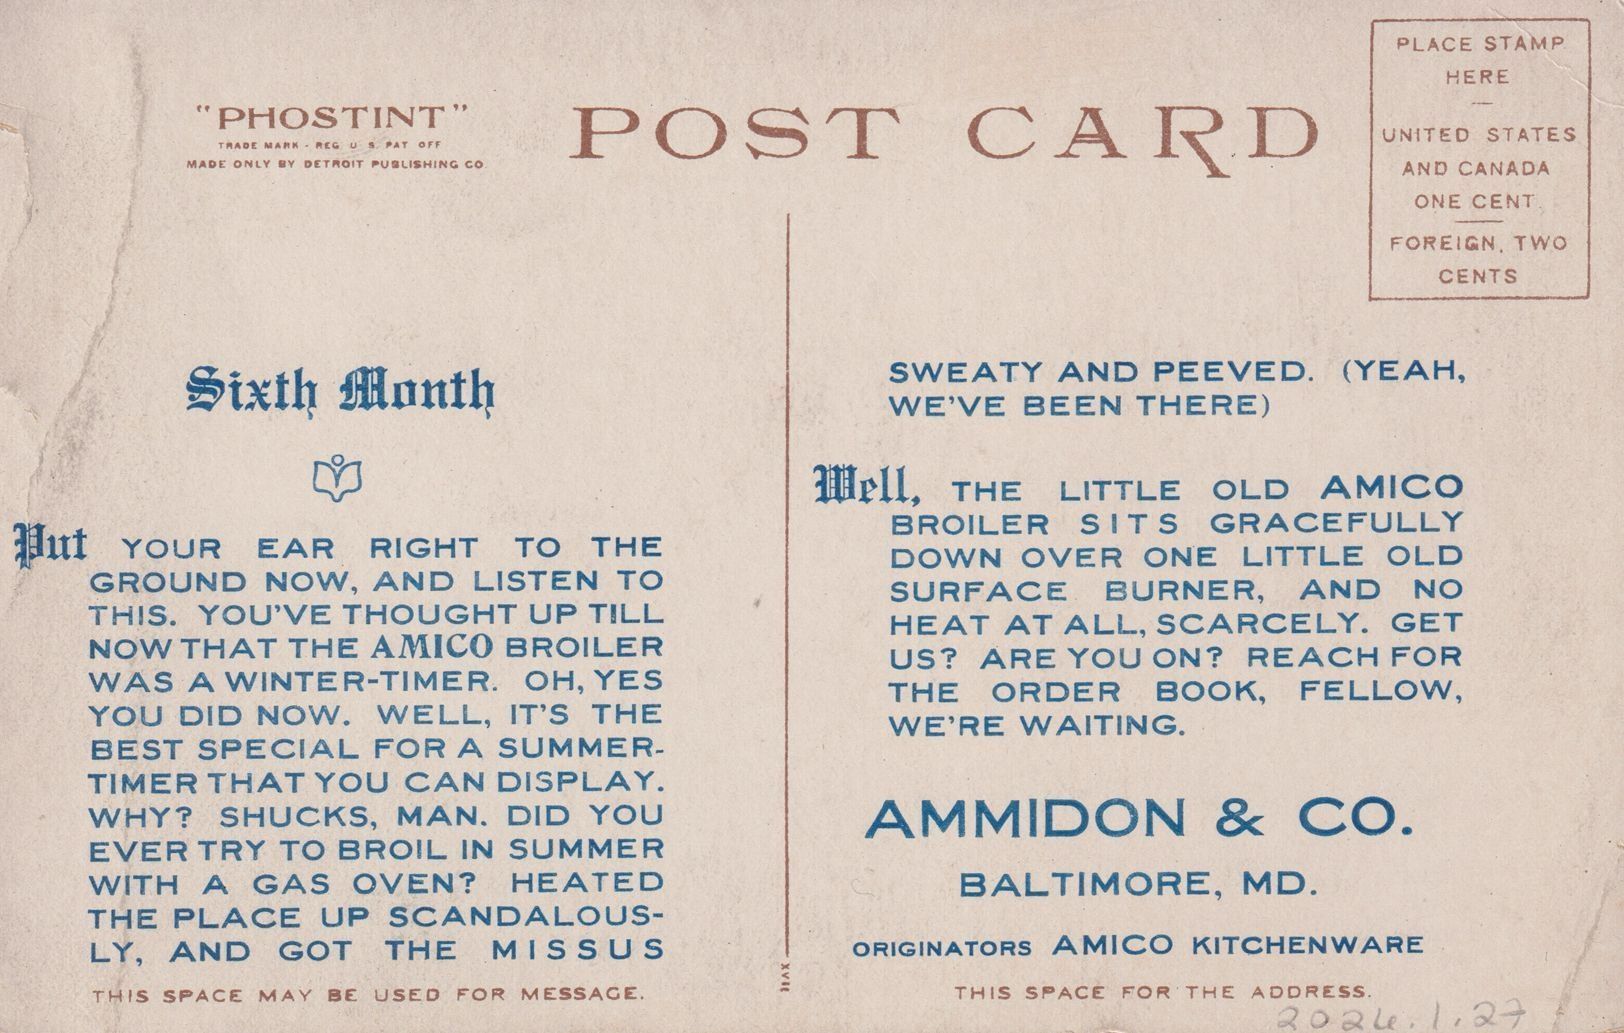 "PHOSTINT"
TRADE MARK - REG U S. PAT OFF
MADE ONLY BY DETROIT PUBLISHING CO
POST CARD
PLACE STAMP
HERE
UNITED STATES
AND CANADA
ONE CENT
FOREIGN, TWO
CENTS
Sixth Month
Put YOUR EAR RIGHT TO THE
GROUND NOW, AND LISTEN TO
THIS. YOU'VE THOUGHT UP TILL
NOW THAT THE AMICO BROILER
WAS A WINTER-TIMER. OH, YES
YOU DID NOW. WELL, IT'S THE
BEST SPECIAL FOR A SUMMER-
TIMER THAT YOU CAN DISPLAY.
WHY? SHUCKS, MAN. DID YOU
EVER TRY TO BROIL IN SUMMER
WITH A GAS OVEN? HEATED
THE PLACE UP SCANDALOUS-
LY, AND GOT THE MISSUS
THIS SPACE MAY BE USED FOR MESSAGE.
SWEATY AND PEEVED. (YEAH,
WE'VE BEEN THERE)
Well, THE LITTLE OLD AMICO
BROILER SITS GRACEFULLY
DOWN OVER ONE LITTLE OLD
SURFACE BURNER, AND NO
HEAT AT ALL, SCARCELY. GET
US? ARE YOU ON? REACH FOR
THE ORDER BOOK, FELLOW,
WE'RE WAITING.
AMMIDON & CO.
BALTIMORE, MD.
ORIGINATORS AMICO KITCHENWARE
THIS SPACE FOR THE ADDRESS.
2024.1.27